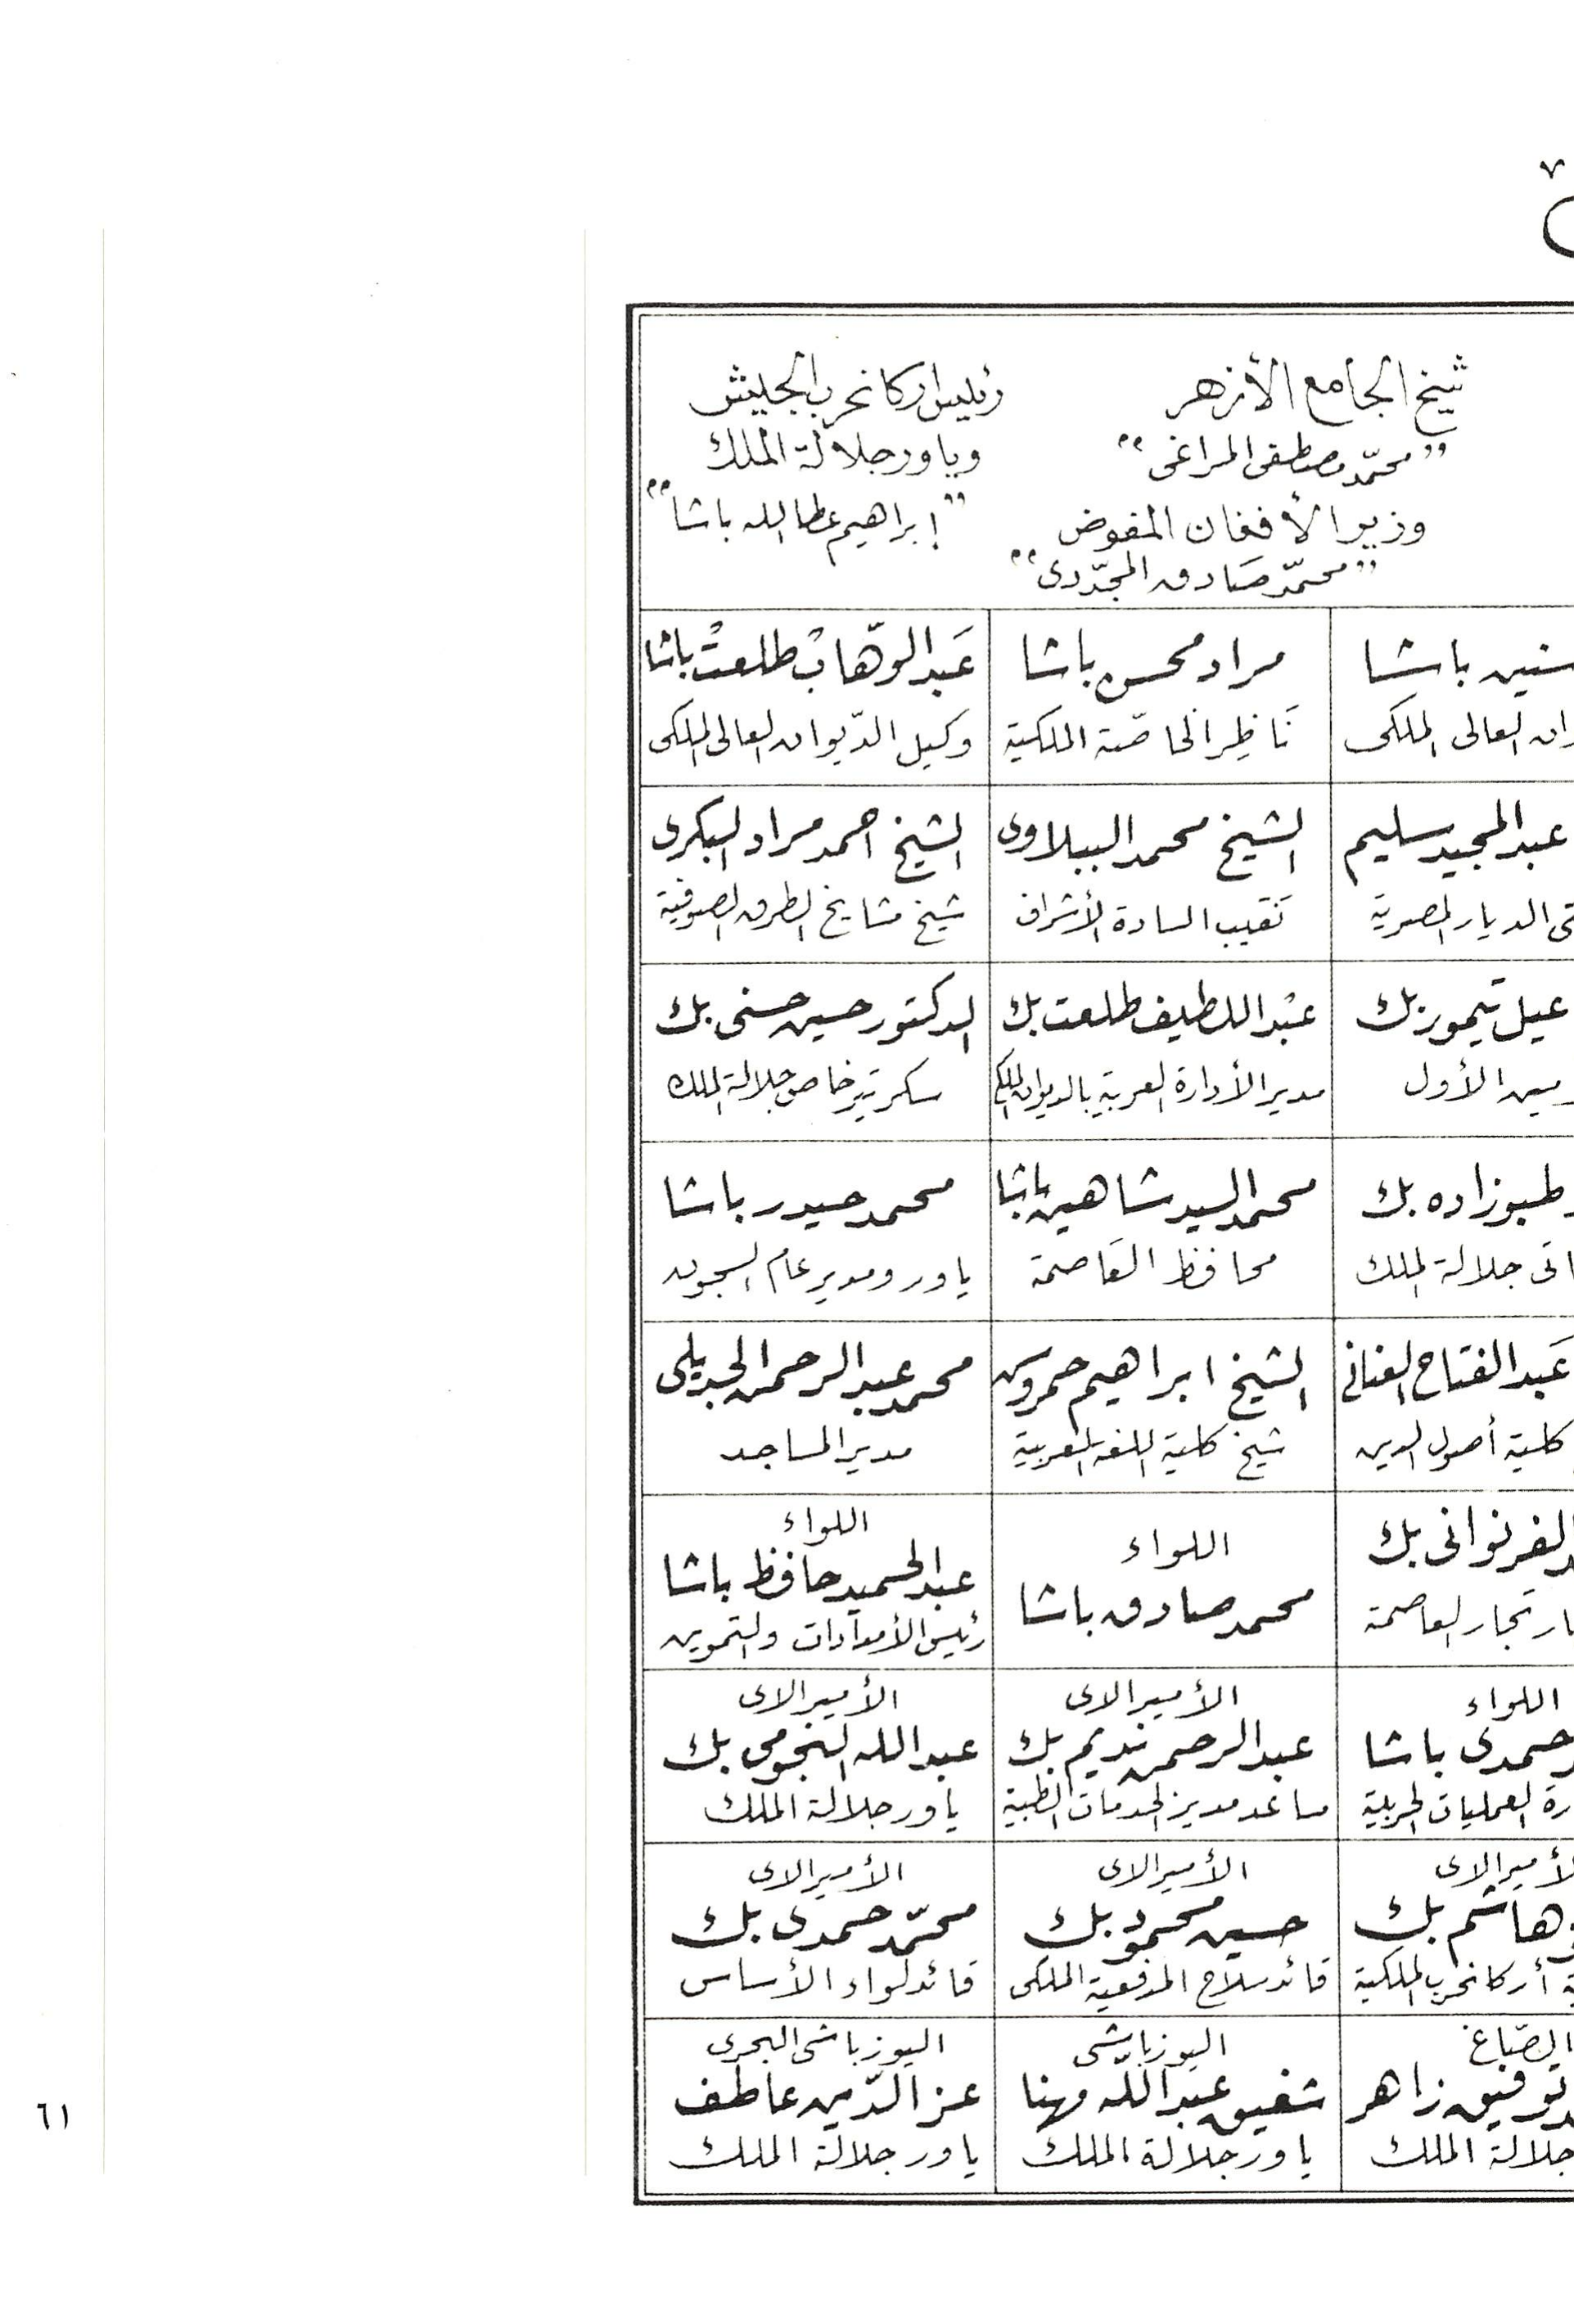 شيخ الجامع الأزهر
"محمّد مصطفى المراغى"
وزير الأفغان المفوض
"محمّد صَادق المجدّدى"
رئيس أركانحرب الجيش
وياور جلالة الملك
"إبراهيم عطا الله باشا"
باشا
العالى الملكى
مراد محسن باشا
نَاظِر الخاصّة الملكية
عَبد الوهّاب طلعت باشا
وكيل الدّيوان العالى الملكى
عبد المجيد سليم
الديار المصرية
الشيخ محمد الببلاوى
نقيب السادة الأشراف
الشيخ احمد مراد البكرى
شيخ مشايخ الطرق الصوفية
تيمور بك
الأول
عبد اللطيف طلعت بك
مدير الأدارة العربية بالديوان الملكى
الدكتور حسين حسنى بك
سكرتير خاص جلالة الملك
زاده بك
جلالة الملك
محمد السيد شاهين باشا
محافظ العَاصمة
محمد حيدر باشا
ياور ومدير عام السجون
عَبد الفتاح العنانى
كلية أصول الدين
الشيخ ابراهيم حمروش
شيخ كلية اللغة العربية
محمد عبد الرحمن الجديلى
مدير المساجد
بك
تجار العاصمة
اللواء
محمد صادق باشا
اللواء
عبد الحميد حافظ باشا
رئيس الأمدادات والتموين
اللواء
حمدى باشا
العمليات الحربية
الأميرالاى
عبد الرحمن نديم بك
مساعد مدير الخدمات الطبية
الأميرالاى
عبد الله النجومى بك
ياور جلالة الملك
الأميرالاى
هاشم بك
أركانحرب الملكية
الأميرالاى
حسين محمود بك
قائد سلاح المدفعية الملكى
الأميرالاى
محمّد حمدى بك
قائد لواء الأساس
توفيق زاهر
جلالة الملك
اليوزباشى
شفيق عبد الله مهنا
ياور جلالة الملك
اليوزباشى البحرى
عز الدّين عاطف
ياور جلالة الملك
٦١